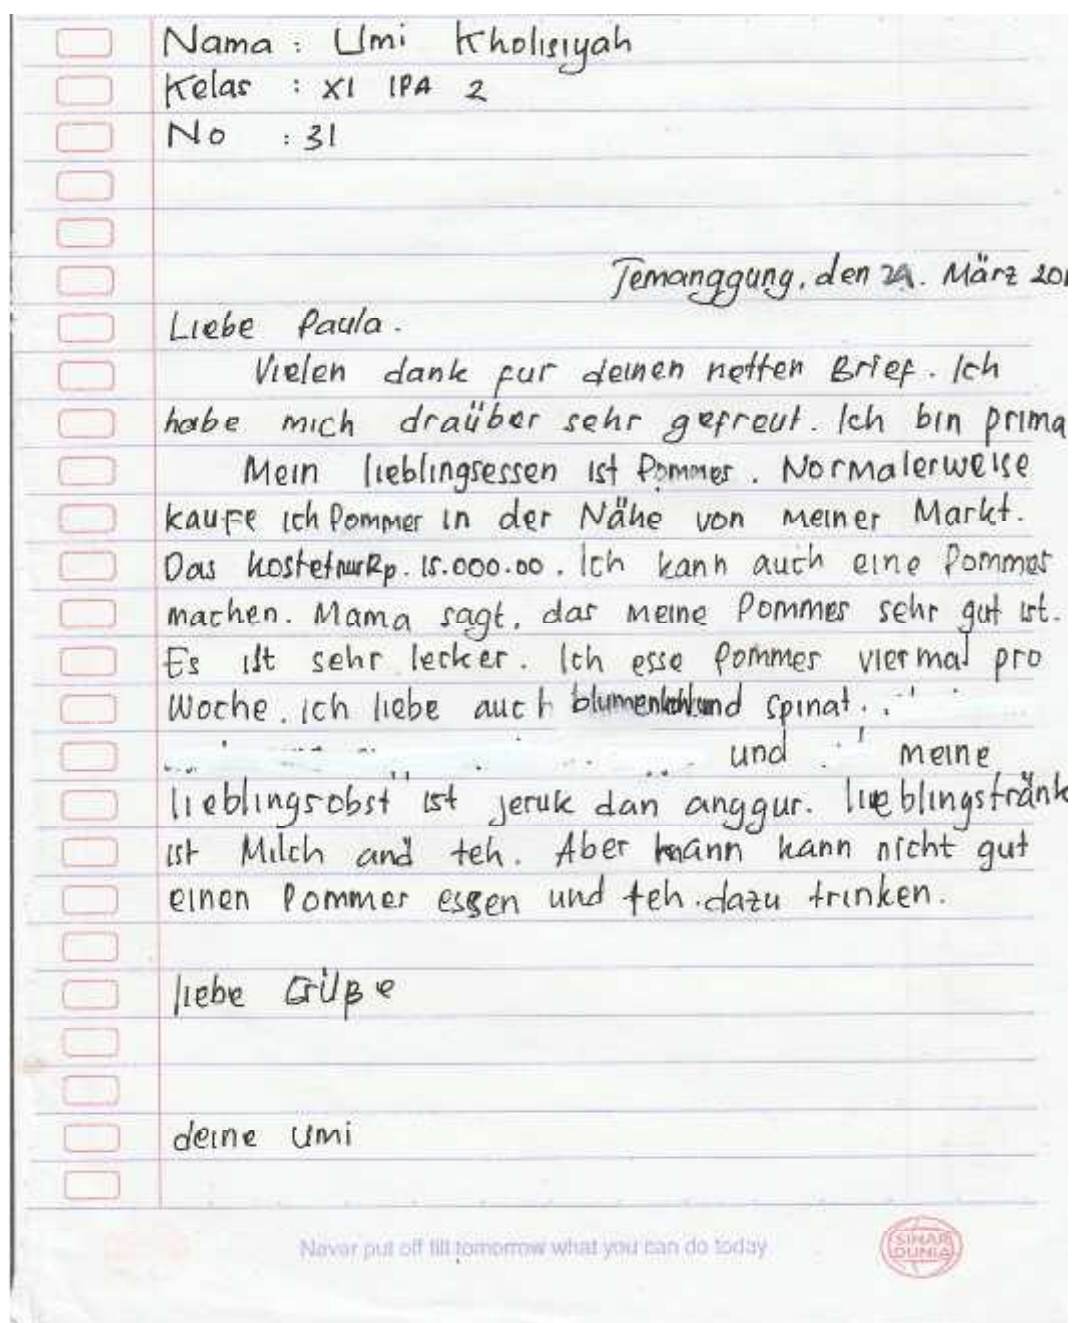 Nama : Umi Kholisiyah
Kelas : XI IPA 2
No : 31
Temanggung, den 29. März 201
Liebe Paula.
Vielen dank fur deinen netten Brief. Ich
habe mich draüber sehr gefreut. Ich bin prima
Mein lieblingsessen ist Pommes. Normalerweise
kaufe ich Pommer in der Nähe von meiner Markt.
Das kostet nur Rp. 15.000.00. Ich kann auch eine Pommes
machen. Mama sagt, das meine Pommes sehr gut ist.
Es ist sehr lecker. Ich esse Pommer viermal pro
Woche. ich liebe auch blumenkohl und spinat.
und meine
lieblingsobst ist jeruk dan anggur. lieblingstränk
ist Milch and teh. Aber mann kann nicht gut
einen Pommer essen und teh dazu trinken.
liebe Grüße
deine Umi
Never put off till tomorrow what you can do today
SINAR
DUNIA